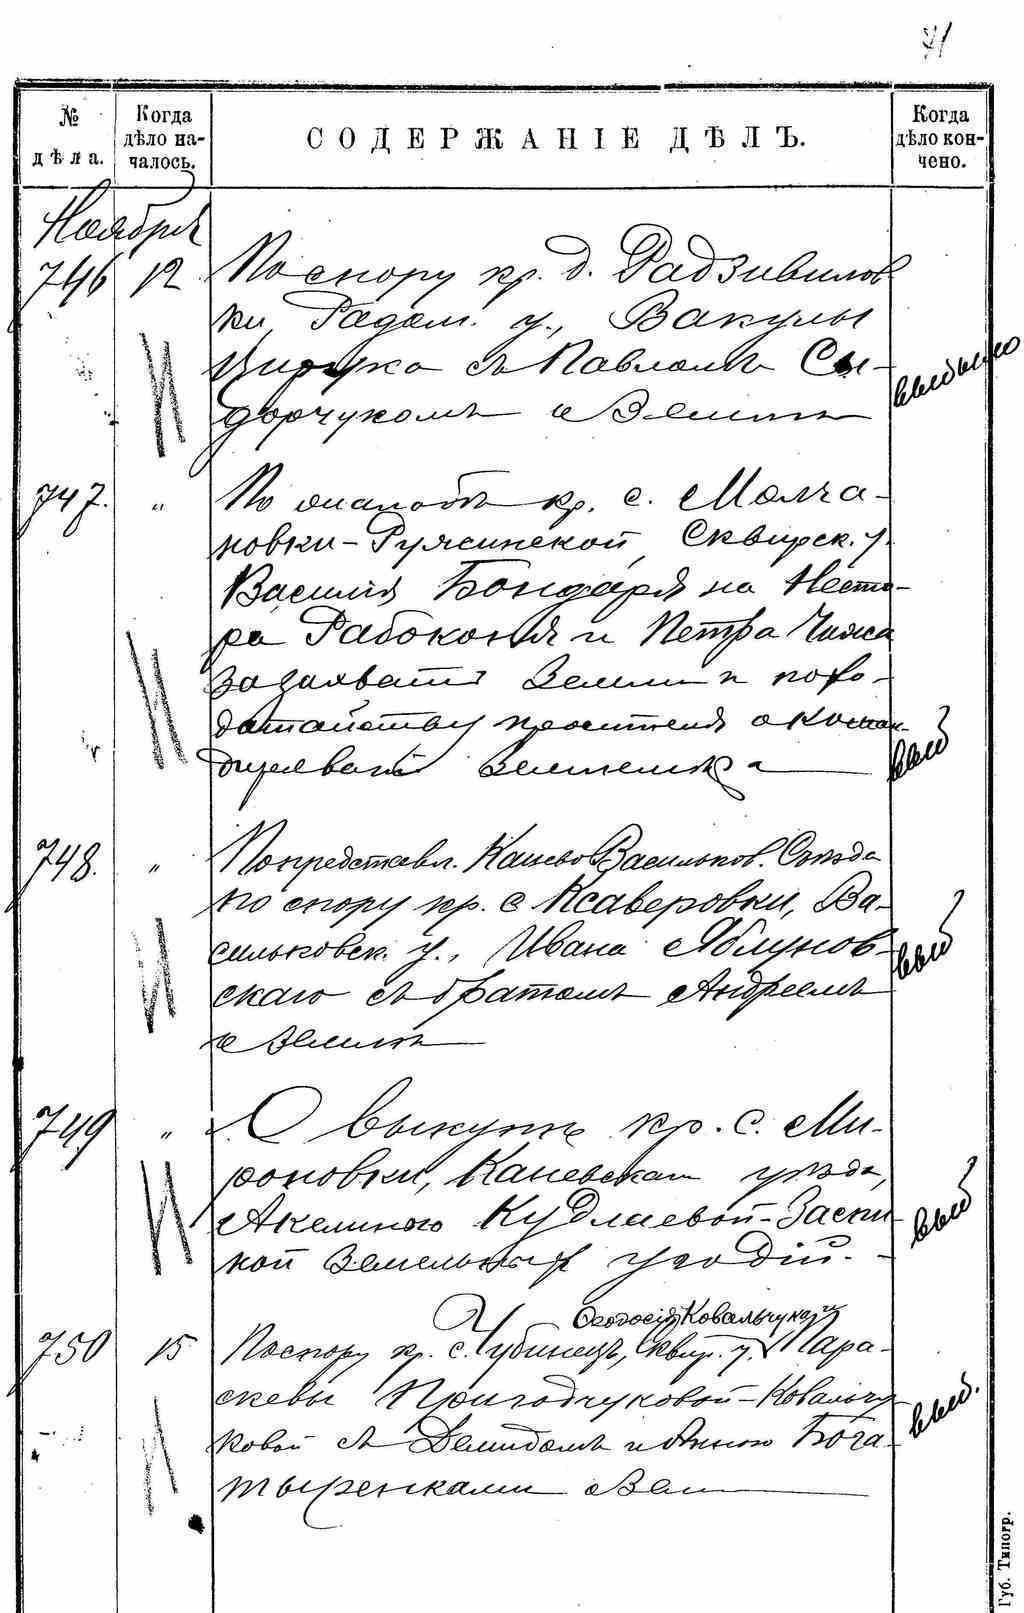 71
№ дѣла.
Когда дѣло началось.
СОДЕРЖАНІЕ ДѢЛЪ.
Когда дѣло кончено.
Ноября
746 12 По спору кр. д. Радзивилов
ки, Радом. у., Вакулы
съ Павломъ Си-
дорчукомъ о землѣ
747. " По жалобѣ кр. с. Молча-
новки-Ружинской, Сквирск. у.
Василія Бондаря на Несто-
ра Рабоконя и Петра Чижа
за захватъ земли и по хо-
датайству просителя о коман-
дированіи землемѣра
748. " По представл. Канево Васильков. Съѣзда
по спору кр. с. Ксаверовки, Ва-
сильковск. у., Ивана Яблунов-
скаго съ братомъ Андреемъ
о землѣ
749 " О выкупѣ кр. с. Ми-
роновки, Каневскаго уѣзда,
Акелиною Кудлаевой-Заспи
кой земельныхъ угодій.
Ковальчука и
750 15 По спору кр. с. Чубинецъ, Сквир. у. Пара-
скевы Пригодчуковой-Ковальчу
ковой съ Демидомъ и Анною Бога
тыренками о зем
Губ. Типогр.